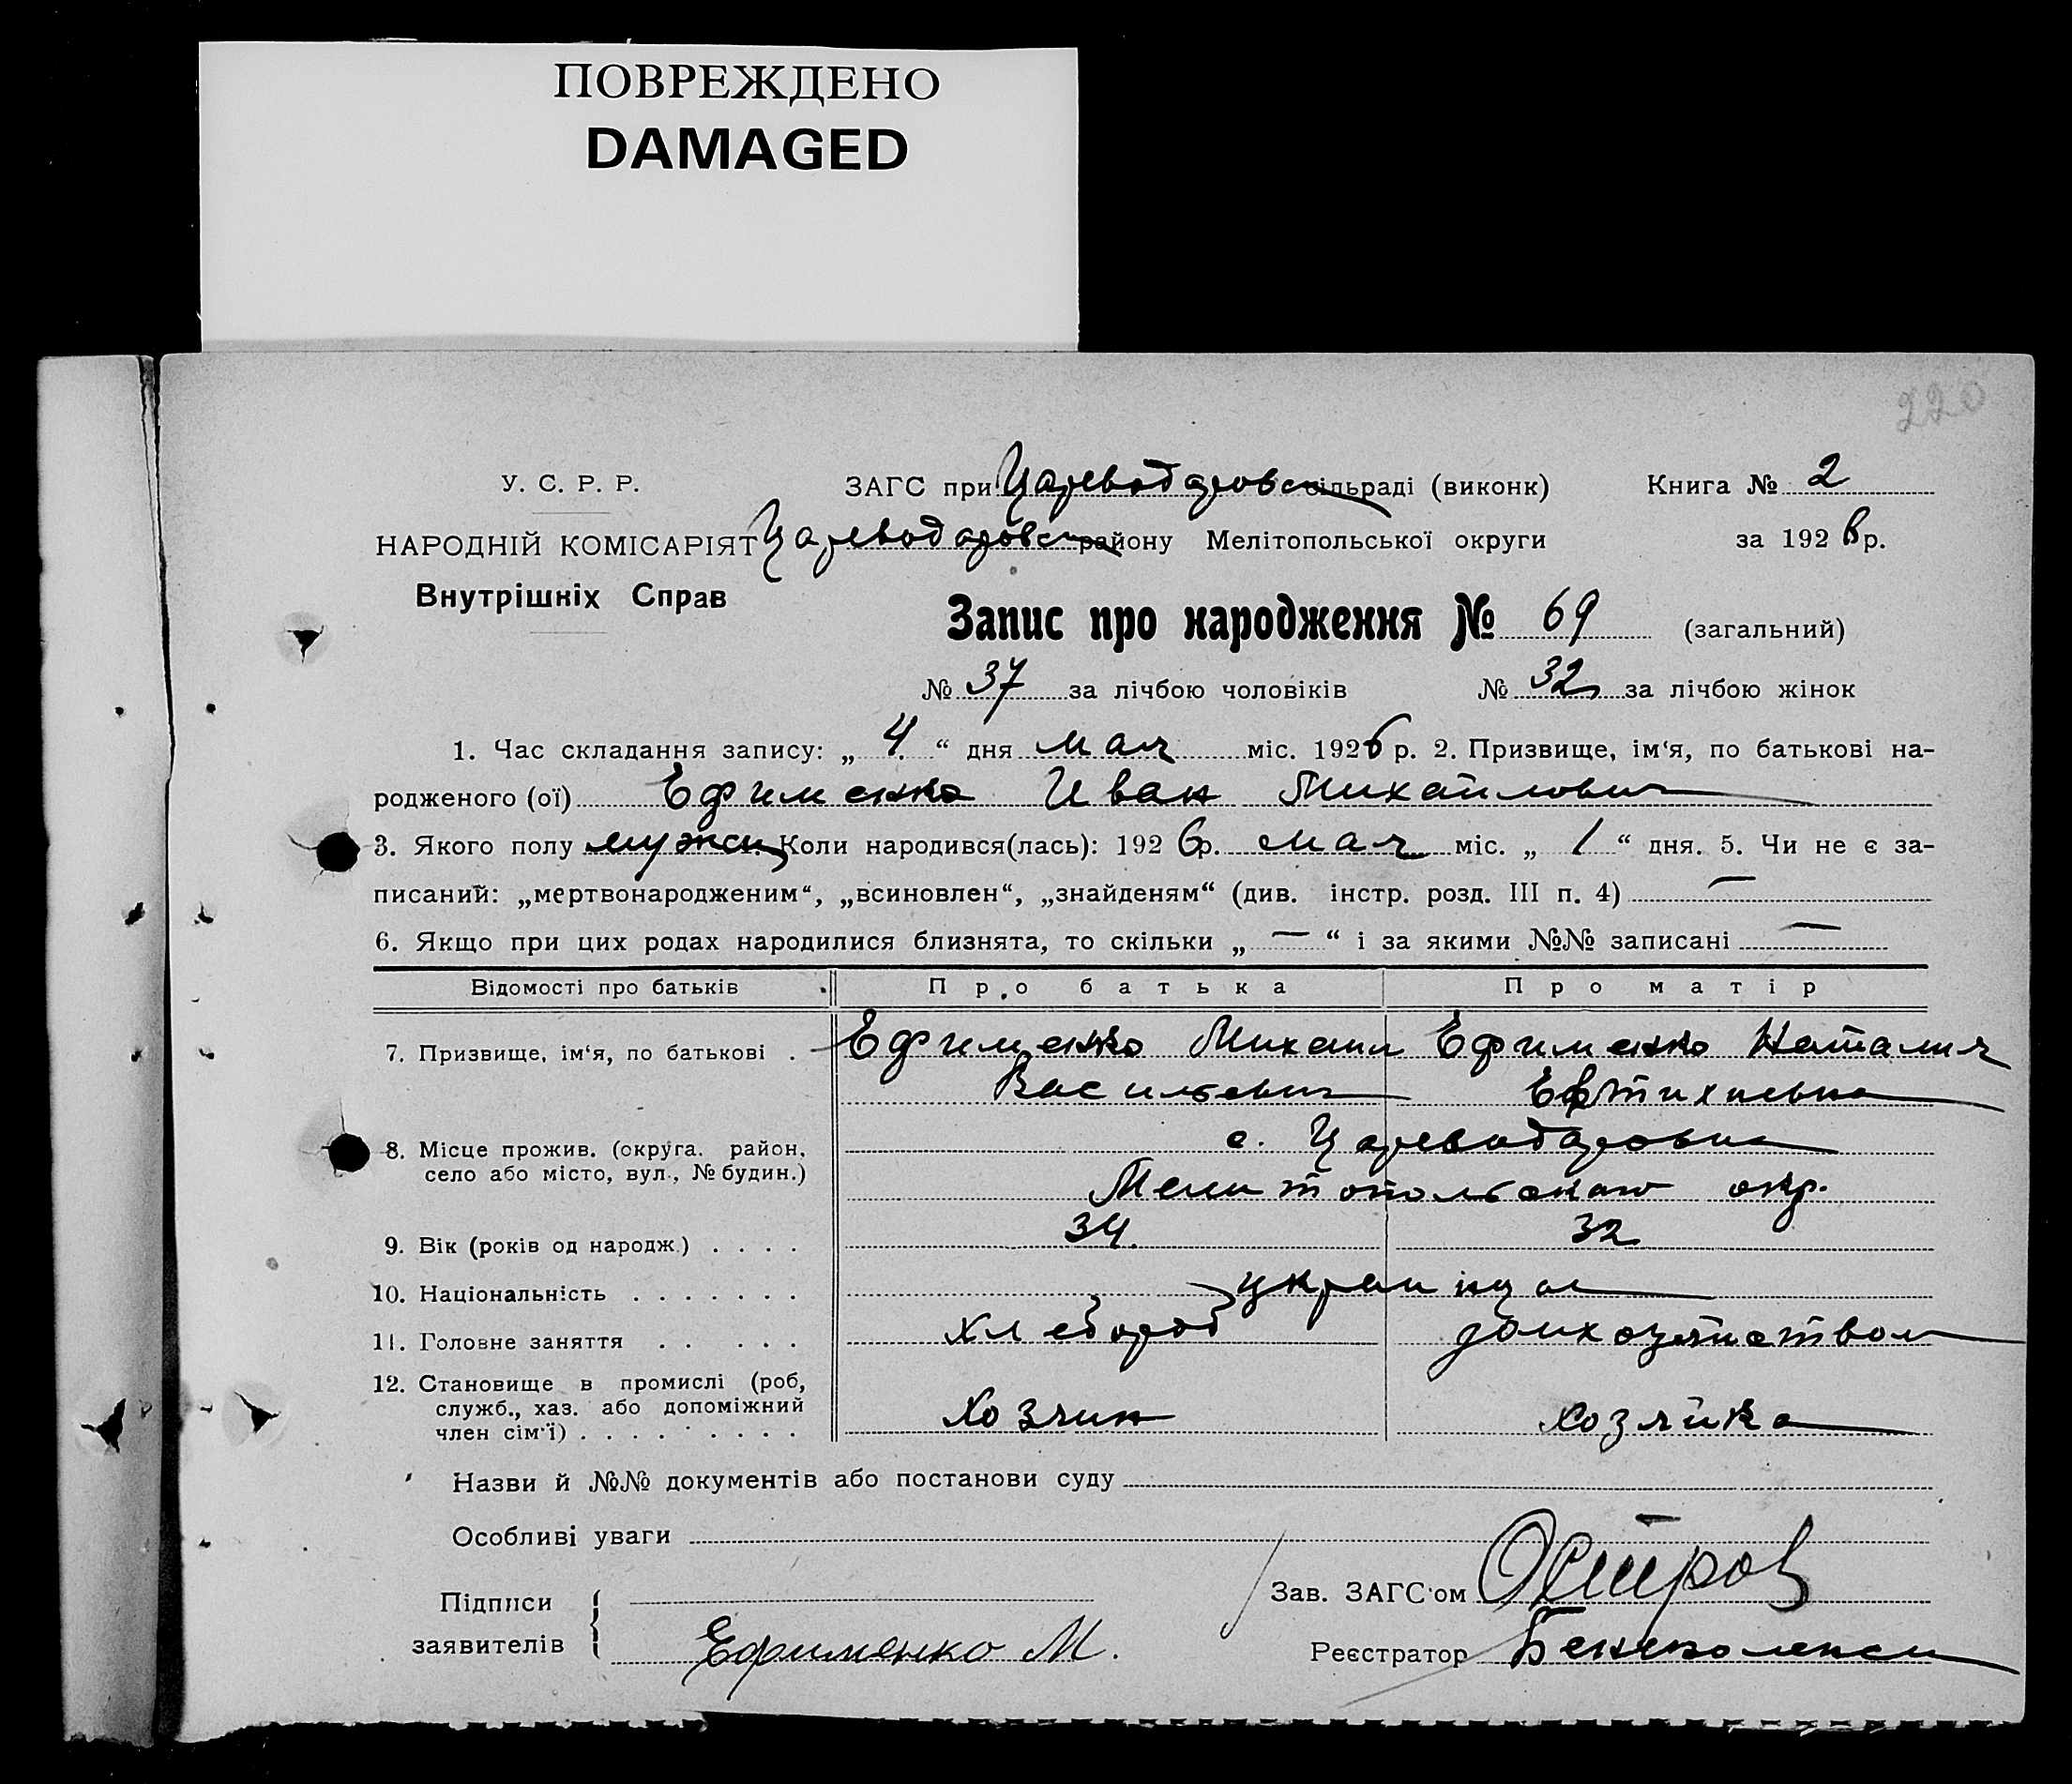 ПОВРЕЖДЕНО
DAMAGED
220
У. С. Р. Р. ЗАГС при Цареводаровск сільраді (виконк) Книга № 2
НАРОДНІЙ КОМІСАРІЯТ Цареводаровск району Мелітопольської округи за 1926 р.
Внутрішніх Справ
Запис про народження № 69 (загальний)
№ 37 за лічбою чоловіків № 32 за лічбою жінок
1. Час складання запису: „ 4 “ дня мая міс. 1926 р. 2. Призвище, ім‘я, по батькові на-
родженого (ої) Ефименко Иван Михайлович
3. Якого полу мужск Коли народився(лась): 1926 р. мая міс. „ 1 “ дня. 5. Чи не є за-
писаний: „мертвонародженим“, „всиновлен“, „знайденям“ (див. інстр. розд. III п. 4) —
6. Якщо при цих родах народилися близнята, то скільки „ — “ і за якими №№ записані —
Відомості про батьків Про батька Про матір
7. Призвище, ім‘я, по батькові . Ефименко Михаил Ефименко Наталия
Васильевич Ефтихиевна
8. Місце прожив. (округа. район, с. Цареводаровка
село або місто, вул., № будин.)
Мелитопольская окр.
9. Вік (років од народж.) . . . . 34. 32
10. Національність . . . . . . . украинцы
11. Головне заняття . . . . . хлебороб домхозяйством
12. Становище в промислі (роб,
служб., хаз. або допоміжний хозяин хозяйка
член сім‘ї) . . . . . . . . .
Назви й №№ документів або постанови суду
Особливі уваги
Зав. ЗАГС‘ом Остров
Підписи
заявителів Ефименко М.
Реєстратор